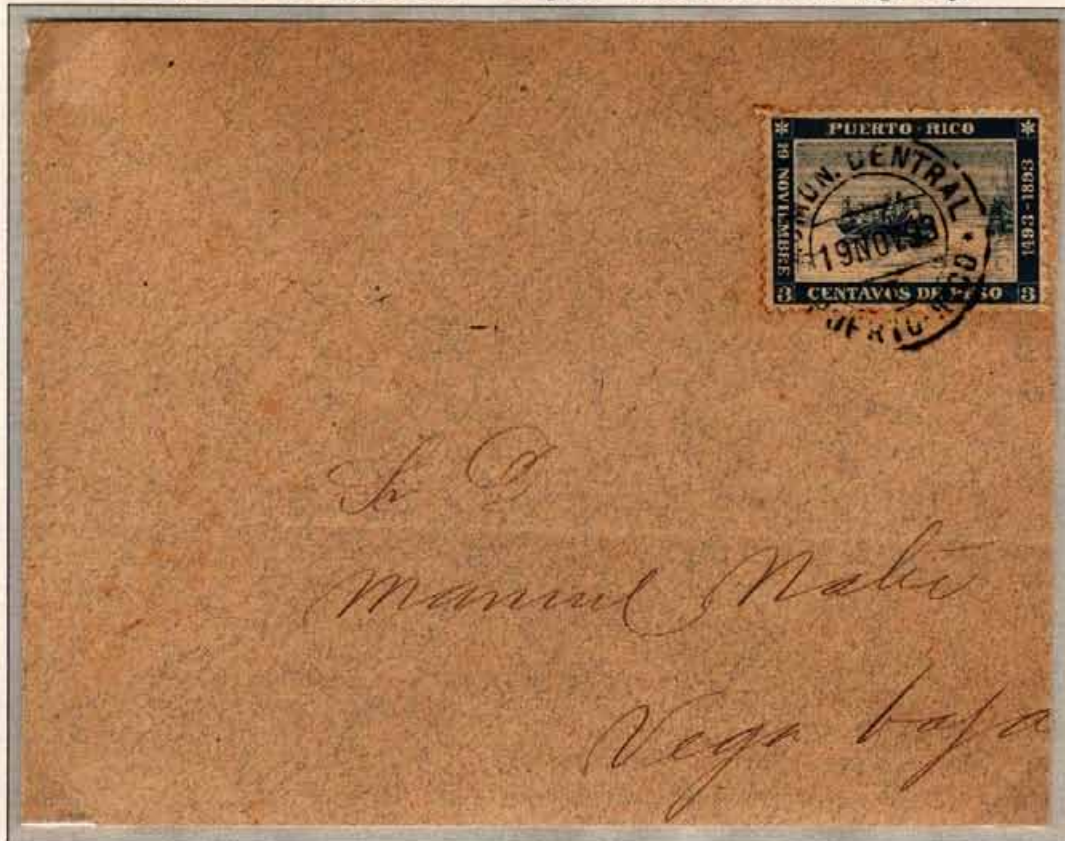 * PUERTO · RICO *
19 NOVIEMBRE
1493-1893
3 CENTAVOS DE PESO 3
CENTRAL
19 NOV 93
PUERTO-RICO
Sr D
Manuel
Vega baja